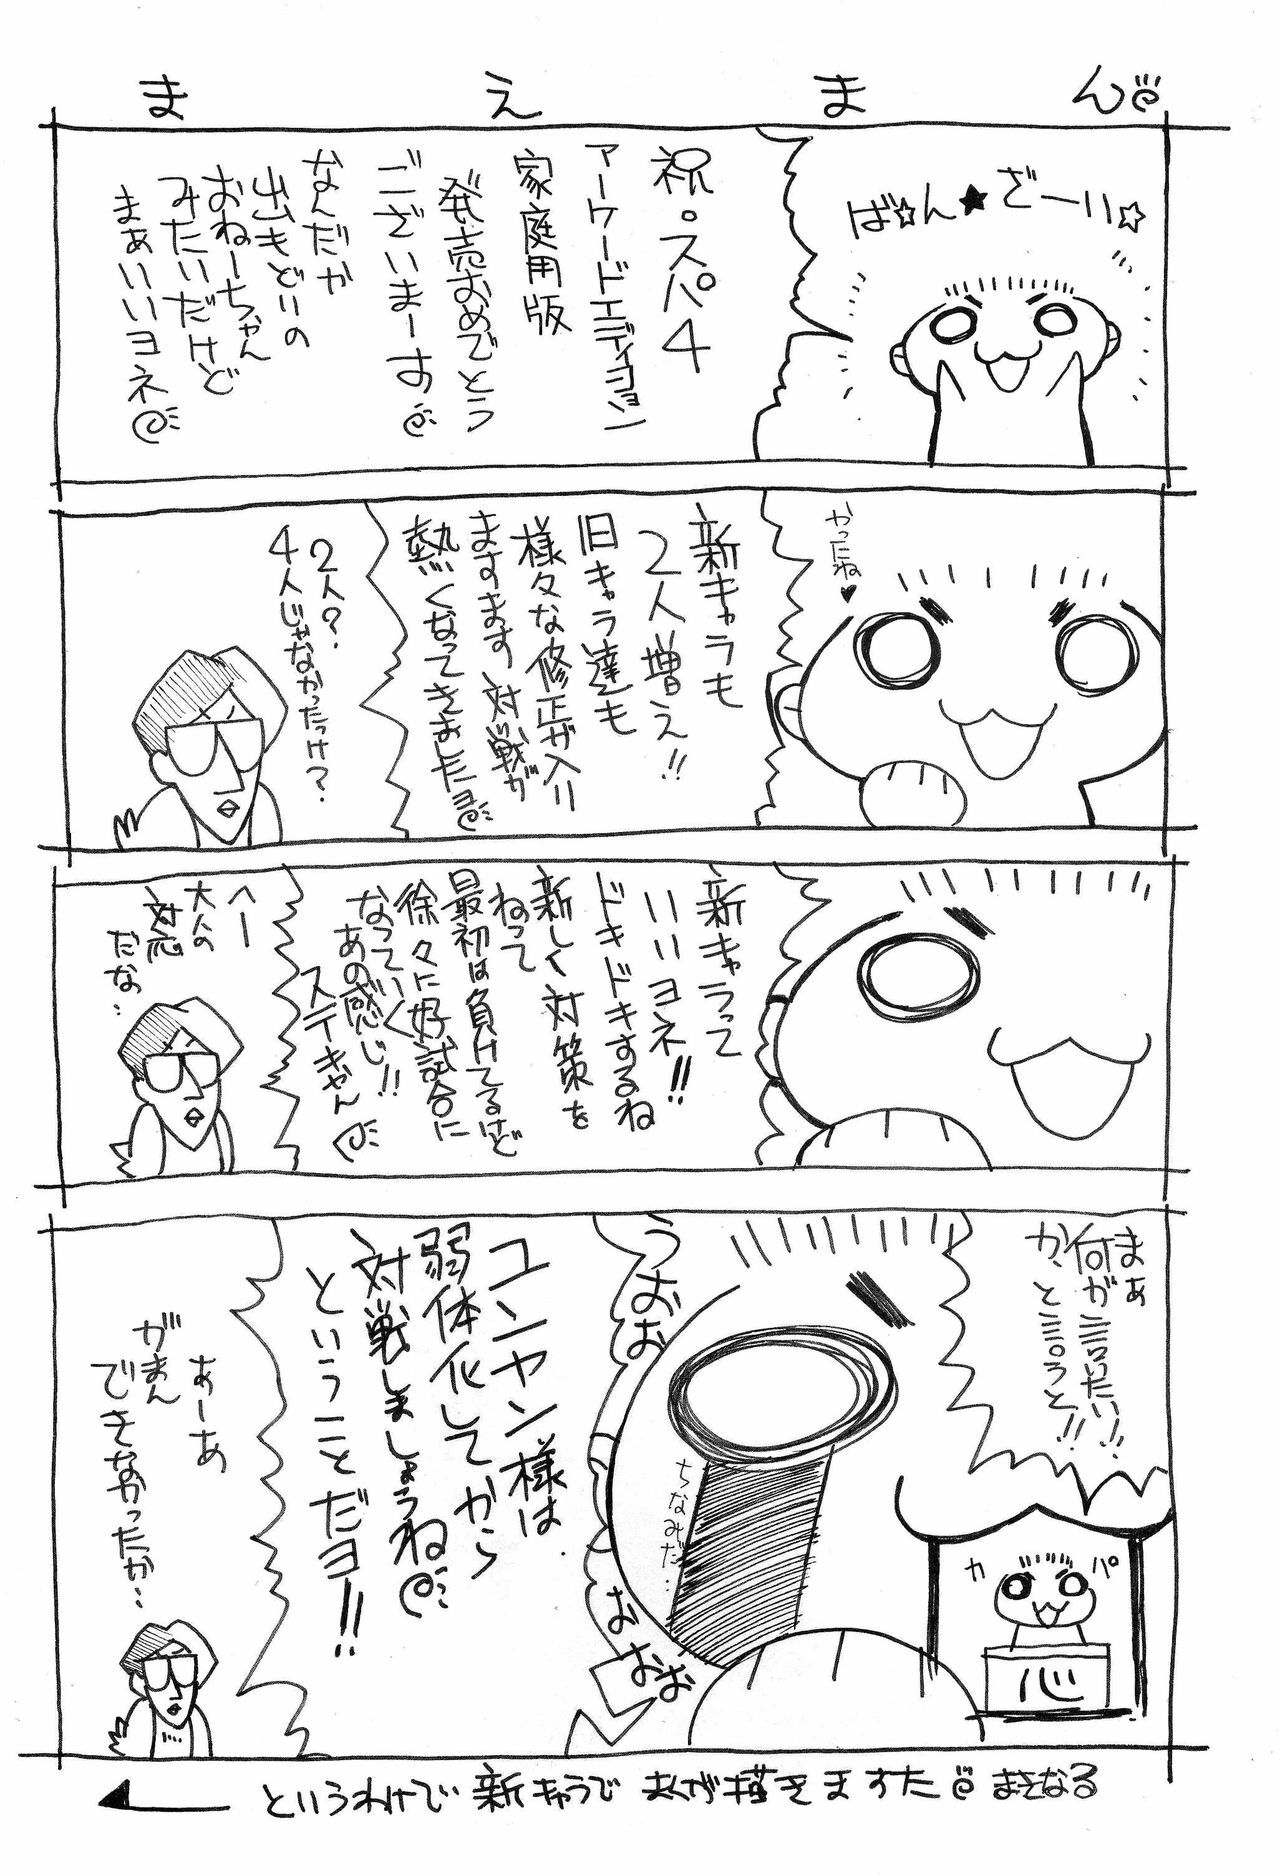 まえまん
ば☆ん★ざーい☆
祝。スパ4
アーケードエディション
家庭用版
発売おめでとう
ございまーす
なんだか
出もどりの
おねーちゃん
みたいだけど
まぁいいヨネ
かったね♥
新キャラも
2人増え!!
旧キャラ達も
様々な修正が入り
ますます対戦が
熱くなってきましたヨ
2人?
4人じゃなかったっけ?
新キャラって
いいヨネ!!
ドキドキするね
新しく対策を
ねって
最初は負けてるけど
徐々に好試合に
なっていく
あの感じ!!
ステキやん
へー
大人の
対応
だな..
まぁ
何が言いたい!!
か、と言うと!!
カパ
心
うおお
ちなみだ..
おおおお
ユンヤン様は
弱体化してから
対戦しましょうね
ということだヨ!!
あーあ
がまん
できなかったか..
というわけで新キャラでまんが描きますた まさなる